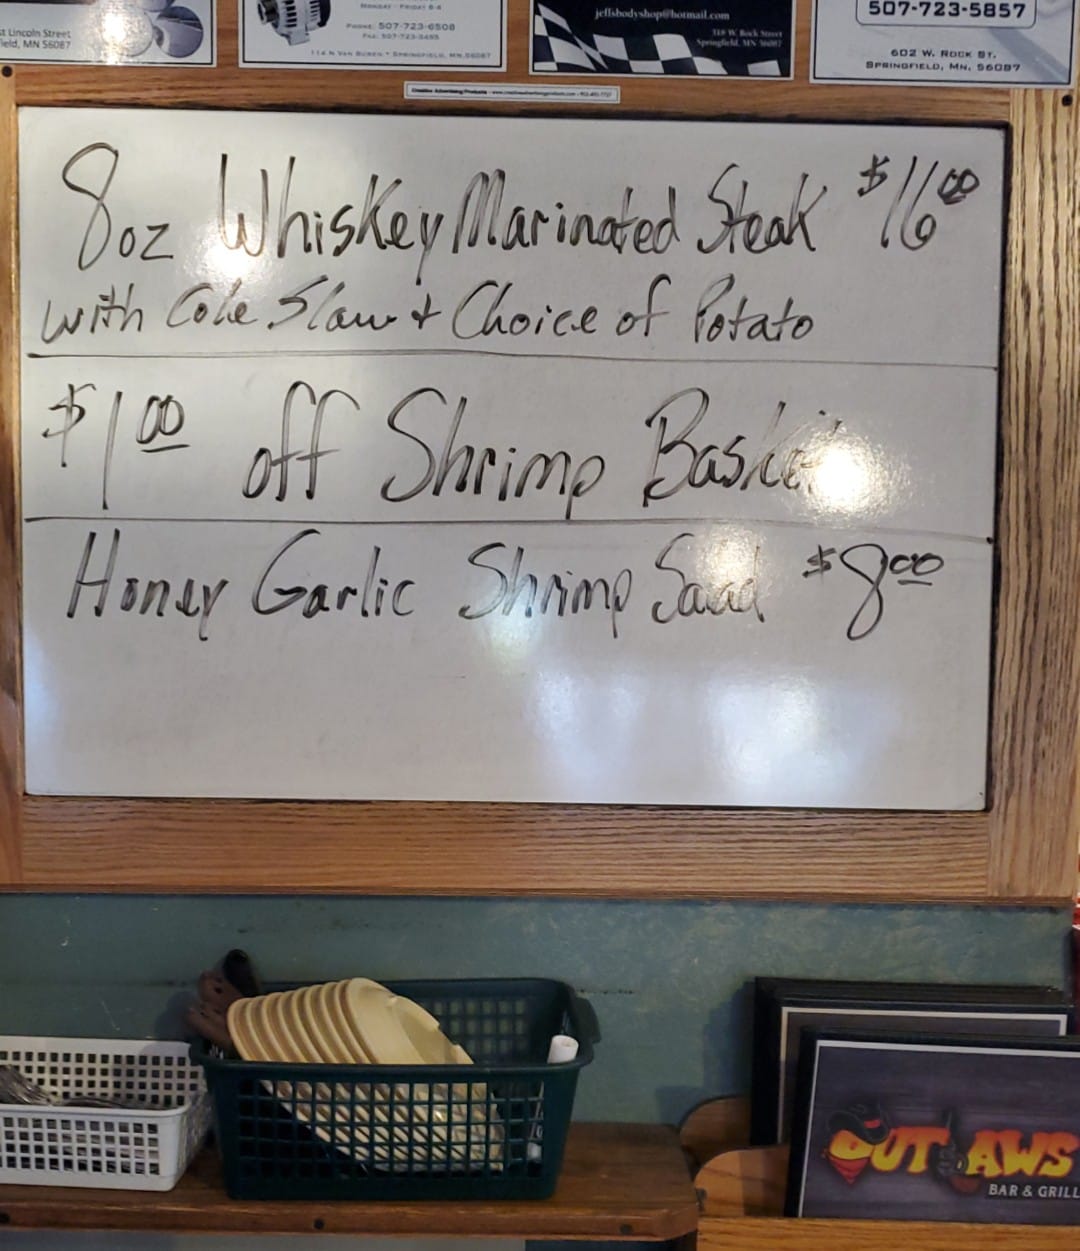 st Lincoln Street
ield, MN 56087
MONDAY - FRIDAY 8-4
PHONE: 507-723-6508
FAX: 507-723-5455
114 N VAN BUREN • SPRINGFIELD, MN, 56087
jeffsbodyshop@hotmail.com
318 W. Rock Street
Springfield, MN 56087
507-723-5857
602 W. ROCK ST.
SPRINGFIELD, MN, 56087
Creative Advertising Products
8oz Whiskey Marinated Steak $16.00
with Cole Slaw + Choice of Potato
$1.00 off Shrimp Basket
Honey Garlic Shrimp Salad $8.00
OUTLAWS
BAR & GRILL